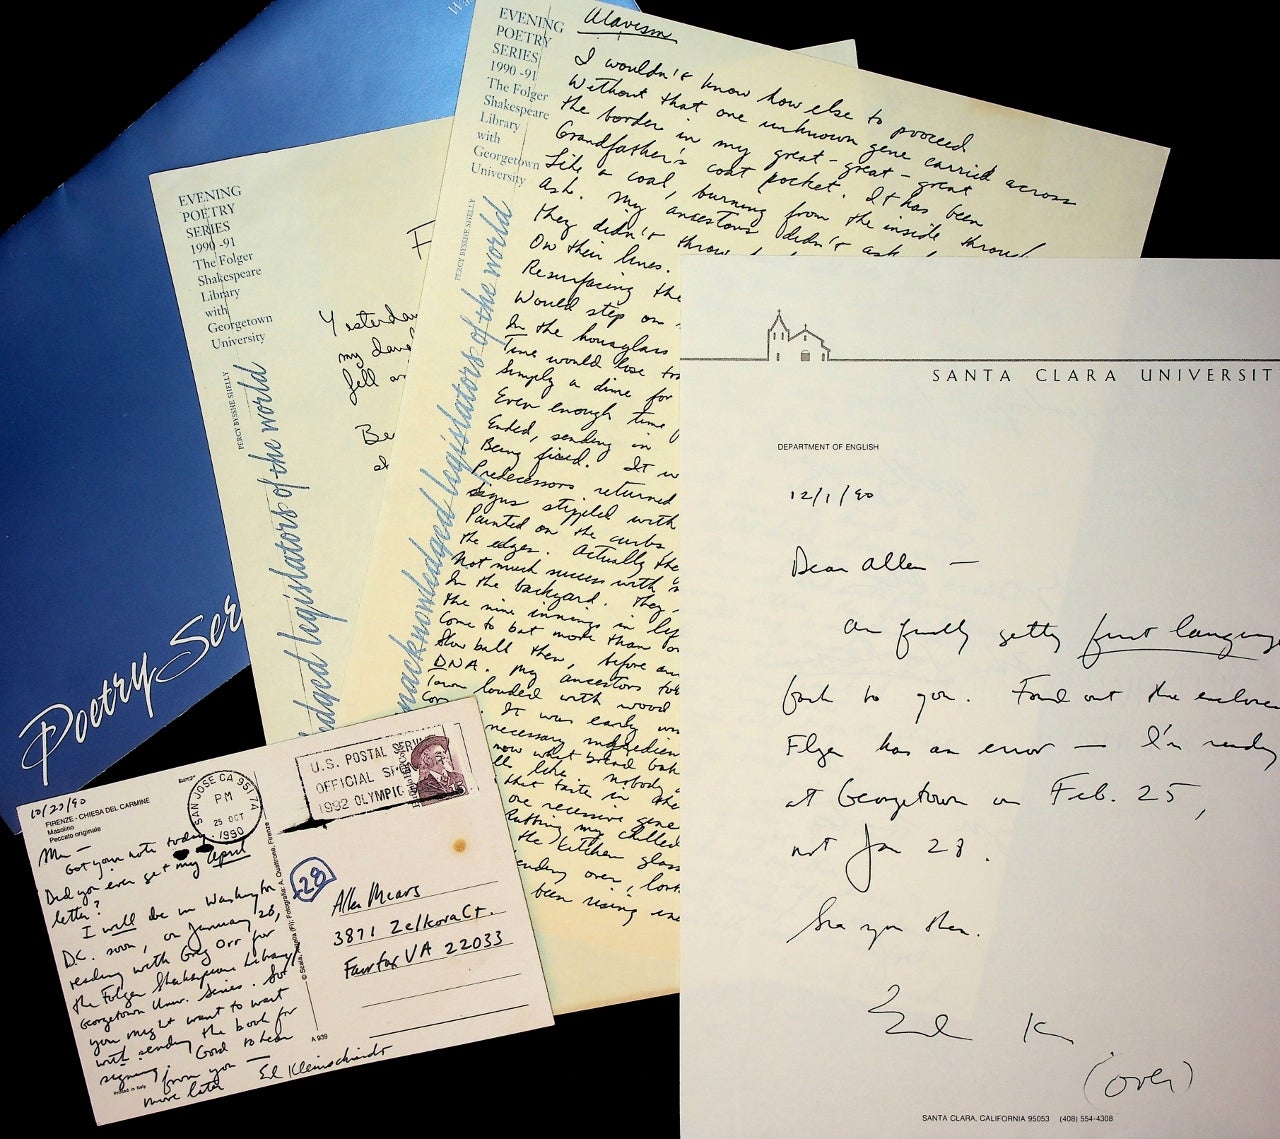 Wa
Poetry Ser
EVENING
POETRY
SERIES
1990-91
The Folger
Shakespeare
Library
with
Georgetown
University
PERCY BYSSHE SHELLY
edged legislators of the world
F
Yesterday
my
fell
Be
EVENING
POETRY
SERIES
1990-91
The Folger
Shakespeare
Library
with
Georgetown
University
PERCY BYSSHE SHELLY
nacknowledged legislators of the world
Atavism
I wouldn't know how else to proceed
Without that one unknown gene carried across
the border in my great-great-great
Grandfather's coat pocket. It has been
Like a coal, burning from the inside through
Ash. My ancestors didn't ask
they didn't throw
On their lines.
Resurfacing the
Would step on
In the hourglass
Time would lose
Simply a dime for
Even enough time
Ended, sending in
Being fixed. It
Predecessors returned
Signs stippled with
Painted on the curbs
the edges. Actually the
Not much success with
In the backyard. They
the nine innings in
Come to bat more than
Slow ball then, before
DNA. My ancestors
Town loaded with wood
It was early
necessary ingredien
now what brand
like nobody
that taste in the
one recessive gene
Putting my chilled
the kitchen glass
ending over,
been rising
SANTA CLARA UNIVERSIT
DEPARTMENT OF ENGLISH
12/1/90
Dear Allen —
Am finally getting first language
back to you. Found out the enclosed
Flyer has an error — I'm reading
at Georgetown on Feb. 25,
not Jan 28.
See you then.
Ed K
(over)
SANTA CLARA, CALIFORNIA 95053 (408) 554-4308
10/23/90
FIRENZE - CHIESA DEL CARMINE
Masolino
Peccato originale
SAN JOSE CA 951 7A
PM
25 OCT
1990
U.S. POSTAL SERVI
OFFICIAL SP
1992 OLYMPIC
Got your note today.
Did you ever get my April
letter?
I will be in Washington
D.C. soon, on January 28,
reading with Greg Orr for
the Folger Shakespeare Library/
Georgetown Univ. Series. So
you might want to wait
with sending the book for
signing. Good to hear
from you —
more later Ed Kleinschmidt
Printed in Italy
© Scala, Antella (Fi); Fotografia: A. Quattrone, Firenze
A 939
28
Allen Mears
3871 Zelkova Ct.
Fairfax VA 22033